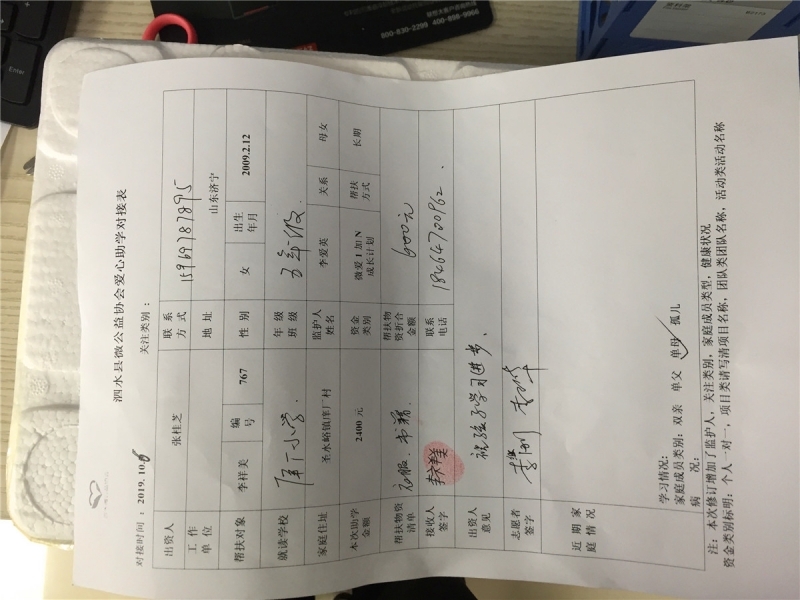 泗水县微公益协会爱心助学对接表
对接时间：2019.10.6 关注类别：
出资人 张桂芝 联系方式 15969787895
工作单位 地址 山东济宁
帮扶对象 李祥美 编号 767 性别 女 出生年月 2009.2.12
就读学校 小学 年级班级 五年级
家庭住址 圣水峪镇庠厂村 监护人姓名 李爱英 关系 母女
本次助学金额 2400元 资金类别 微爱1加N成长计划 帮扶方式 长期
帮扶物资清单 衣服、书籍 帮扶物资折合金额 600元
接收人签字 联系电话 18464700962
出资人意见 祝孩子学习进步、
志愿者签字
近期家庭情况
学习情况：
家庭成员类别：双亲 单父 单母 孤儿
病 况：
注：本次修订增加了监护人，关注类别，家庭成员类型，健康状况
资金类别标明：个人一对一，项目类请写清项目名称，团队类团队名称，活动类活动名称
800-830-3299 400-898-9966
Enter